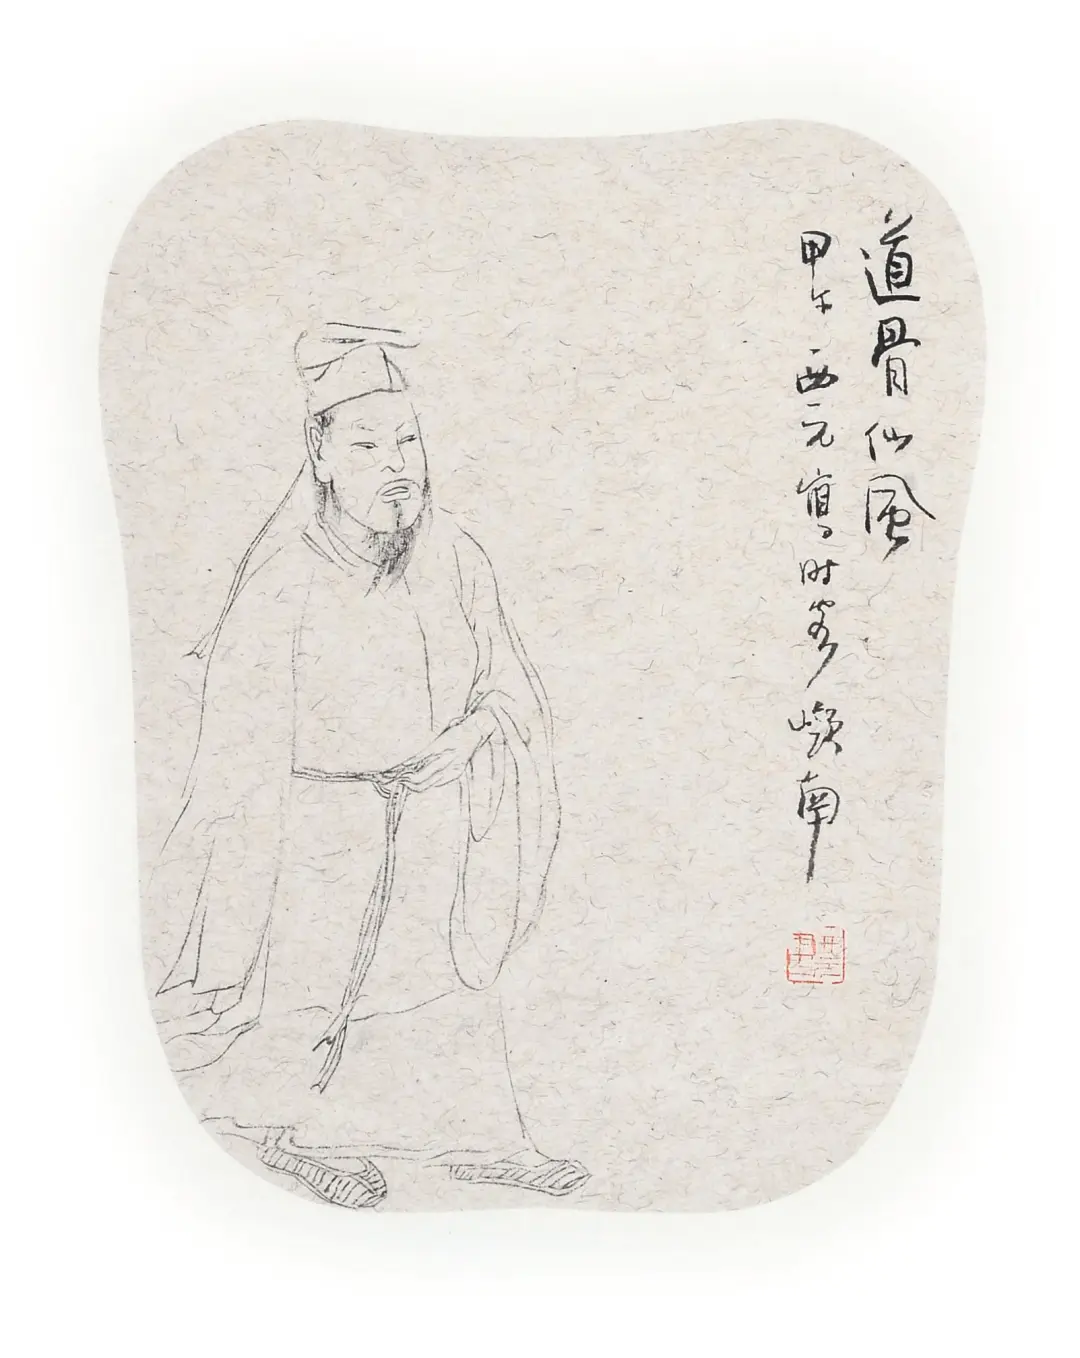 道骨仙风
甲午 西元写时客岭南